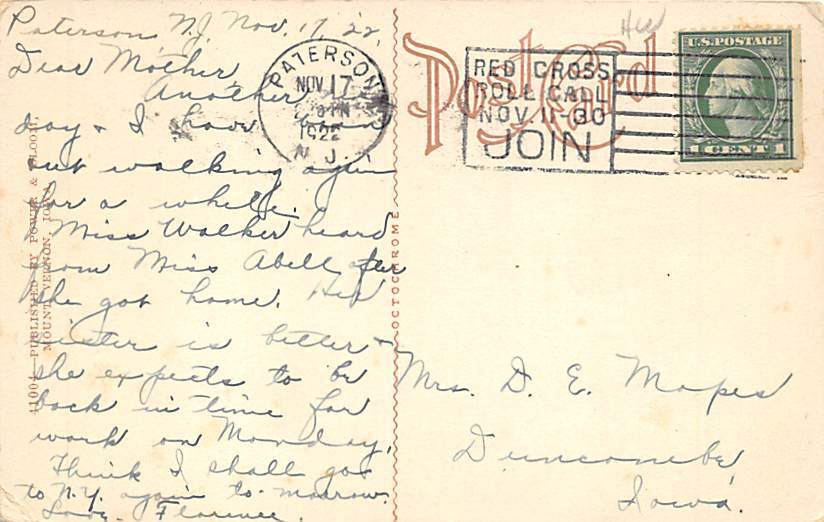 Paterson N.J. Nov. 17 '22,
Dear Mother,
Another
day & I have been
out walking again
for a while.
Miss Walker heard
from Miss Abell after
she got home. Her
sister is better &
she expects to be
back in time for
work on Monday.
Think I shall go
to N.Y. again to-morrow.
Love - Florence.
11004—PUBLISHED BY POWER &
MOUNT VERNON, IOWA
OCTOCHROME
Post Card
PATERSON
NOV 17
1922
N. J.
RED CROSS
ROLL CALL
NOV. 11-30
JOIN
U.S. POSTAGE
1 CENT 1
Mrs. D. E. Mapes
Duncombe,
Iowa.